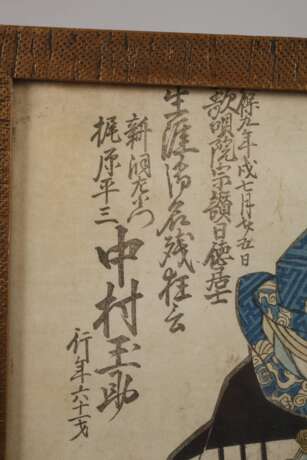 保九年戌七月廿五日
歌明院宗讃日徳居士
生涯御名残狂言
新洞左衛門
梶原平三
中村玉助
行年六十一才